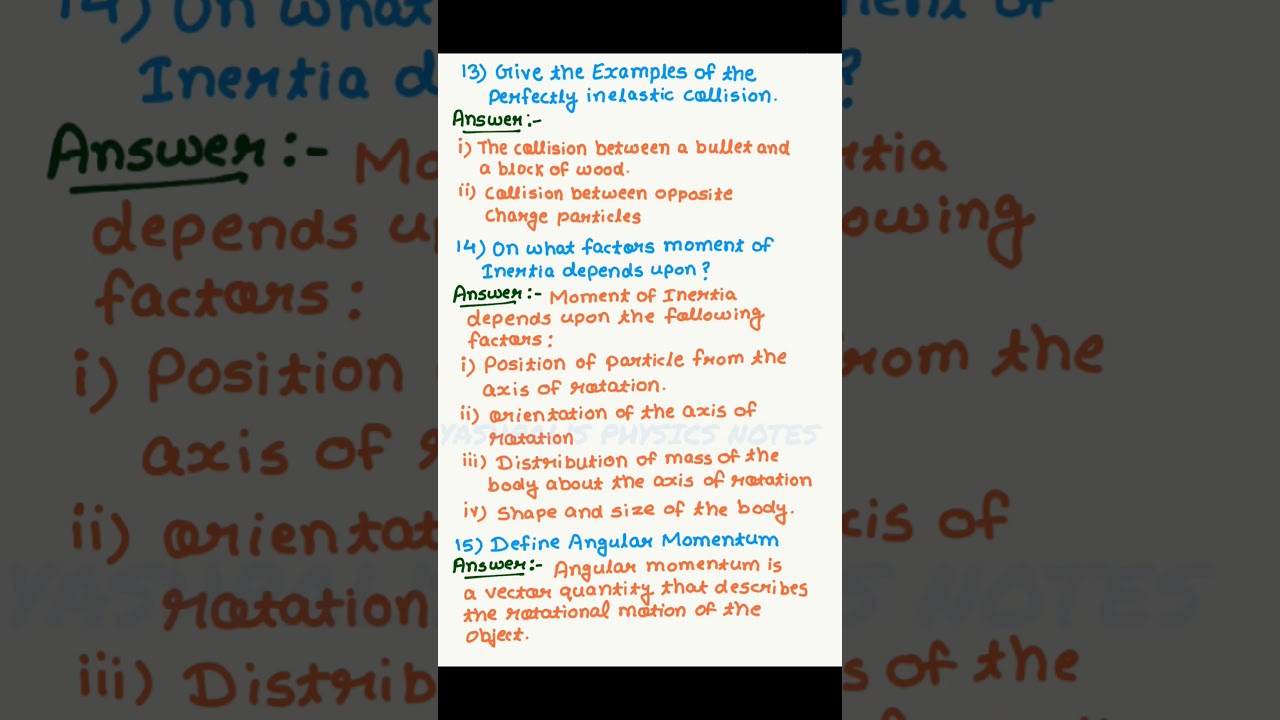 13) Give the Examples of the
Perfectly inelastic collision.
Answer:-
i) The collision between a bullet and
a block of wood.
ii) Collision between opposite
charge particles
14) On what factors moment of
Inertia depends upon?
Answer:- Moment of Inertia
depends upon the following
factors:
i) Position of particle from the
axis of rotation.
ii) orientation of the axis of
rotation
YASHPAL'S PHYSICS NOTES
iii) Distribution of mass of the
body about the axis of rotation
iv) Shape and size of the body.
15) Define Angular Momentum
Answer:- Angular momentum is
a vector quantity that describes
the rotational motion of the
object.